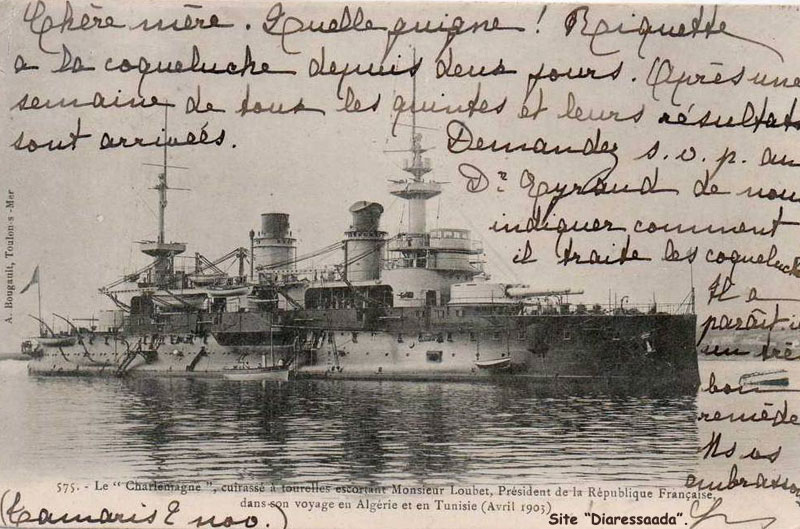 Chère mère. Quelle guigne ! Riquette
a la coqueluche depuis deux jours. Après une
semaine de toux les quintes et leurs résultats
sont arrivées.
Demandez s. v. p. au
Dr Eyraud de nous
indiquer comment
il traite les coqueluch
Il a
paraît-il
un trè
bon
remède
Ns vs
embrassons
A. Bougault, Toulon-s-Mer
575. - Le "Charlemagne", cuirassé à tourelles escortant Monsieur Loubet, Président de la République Française,
dans son voyage en Algérie et en Tunisie (Avril 1903)
(Tamaris 2 nov.)
Site "Diaressaada".